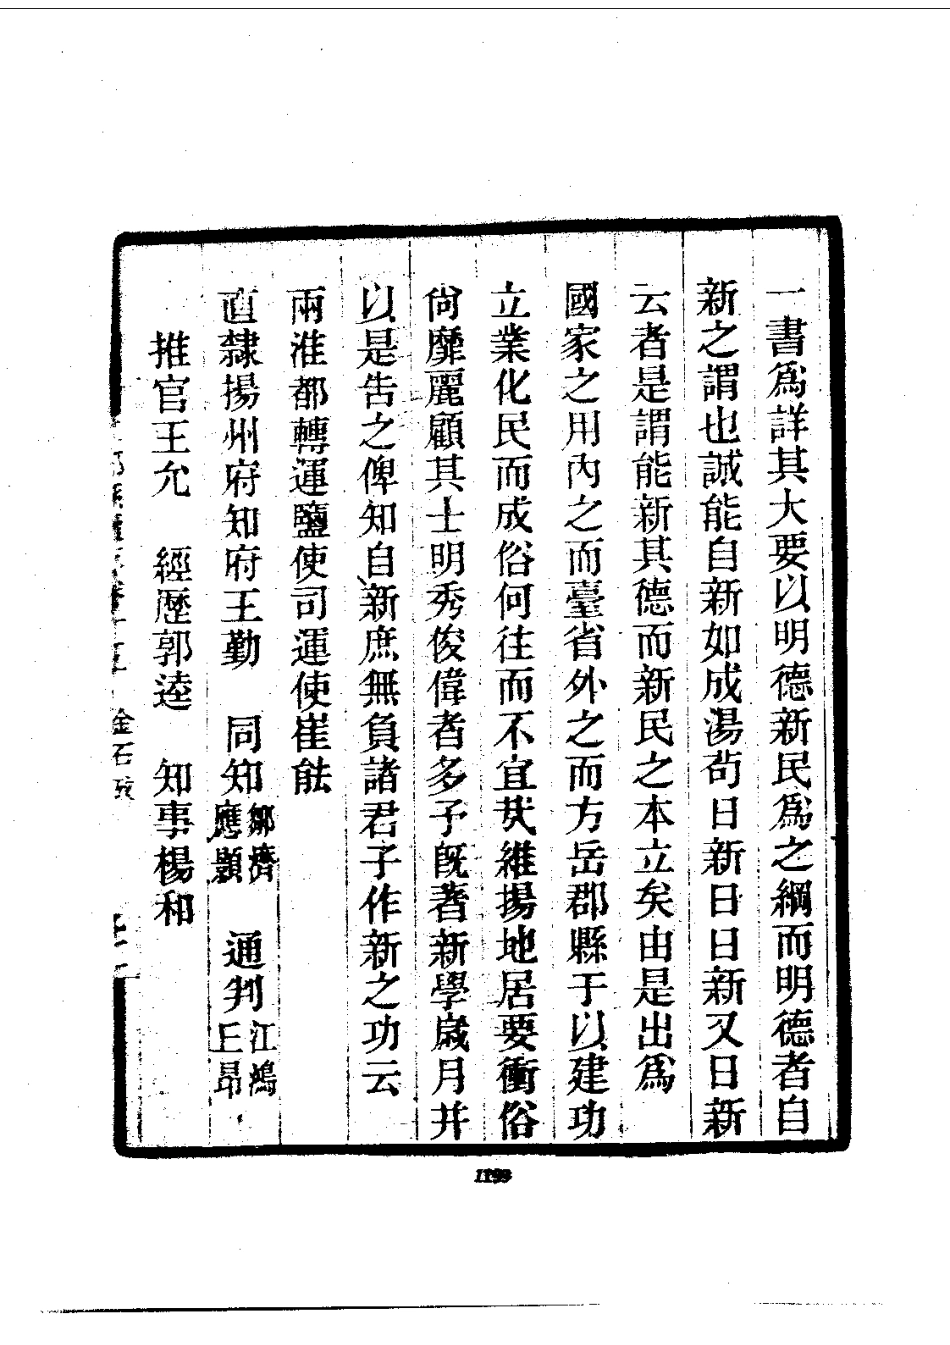 一書爲詳其大要以明德新民爲之綱而明德者自
新之謂也誠能自新如成湯茍日新日日新又日新
云者是謂能新其德而新民之本立矣由是出爲
國家之用內之而臺省外之而方岳郡縣于以建功
立業化民而成俗何往而不宜哉維揚地居要衝俗
尙靡麗顧其士明秀俊偉者多予旣著新學歲月并
以是告之俾知自新庶無負諸君子作新之功云
兩淮都轉運鹽使司運使崔
直隸揚州府知府王勤 同知鄒濟應顥 通判江鴻王昂
推官王允 經歷郭逵 知事楊和
金石
1199